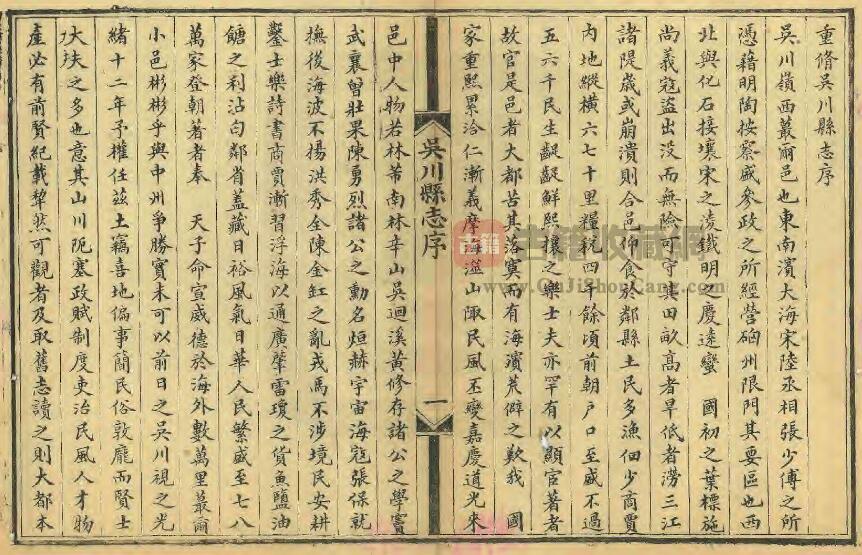 重脩吳川縣志序
吳川嶺西蕞爾邑也東南濱大海宋陸丞相張少傅之所
憑藉明陶按察戚參政之所經營硇州限門其要區也西
北與化石接壤宋之凌鐵明之慶遠蠻　國初之葉標施
尚義寇盜出没而無險可守其田畝高者旱低者澇三江
諸隄歲或崩潰則合邑仰食於鄰縣土民多漁佃少商賈
内地縱橫六七十里糧税四千餘頃前朝戸口至盛不過
五六千民生齪齪鮮熙穰之樂士夫亦罕有以顯宦著者
故官是邑者大都苦其落寞而有海濱荒僻之歎我　國
家重熙累洽仁漸義摩海澨山陬民風丕變嘉慶道光來
吳川縣志序
一
邑中人物若林芾南林辛山吳迴溪黄修存諸公之學竇
武襄曾壯果陳勇烈諸公之勳名烜赫宇宙海寇張保就
撫後海波不揚洪秀全陳金缸之亂戎馬不涉境民安耕
鑿士樂詩書商賈漸習浮海以通廣肇雷瓊之貨魚鹽油
餹之利沾匄鄰省蓋藏日裕風氣日華人民繁盛至七八
萬家登朝著者奉　天子命宣威德於海外數萬里蕞爾
小邑彬彬乎與中州爭勝實未可以前日之吳川視之光
緒十二年予權任兹土竊喜地偏事簡民俗敦龐而賢士
大夫之多也意其山川阨塞政賦制度吏治民風人才物
產必有前賢紀載犂然可觀者及取舊志讀之則大都本
古籍
古籍收藏網
www.GuJiShouCang.com